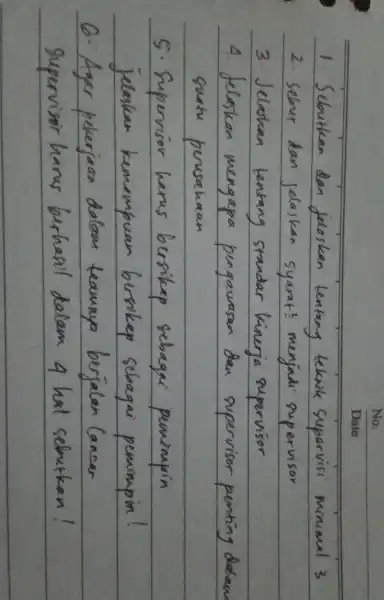 No.
Date
1. Sebutkan dan jelaskan tentang teknik supervisi minimal 3
2. Sebut dan jelaskan syarat² menjadi supervisor
3 Jelaskan tentang standar kinerja supervisor
4. Jelaskan mengapa pengawasan dan supervisor penting dalam
suatu perusahaan
5. Supervisor harus bersikap sebagai pemimpin
jelaskan kemampuan bersikap sebagai pemimpin!
6. Agar pekerjaan dalam teamnya berjalan lancar
supervisor harus berhasil dalam 4 hal sebutkan!